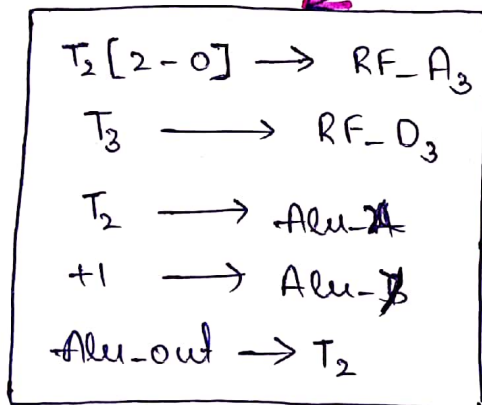 T₂[2-0] → RF_A₃
T₃ → RF_D₃
T₂ → Alu-A
+1 → Alu-B
Alu-out → T₂